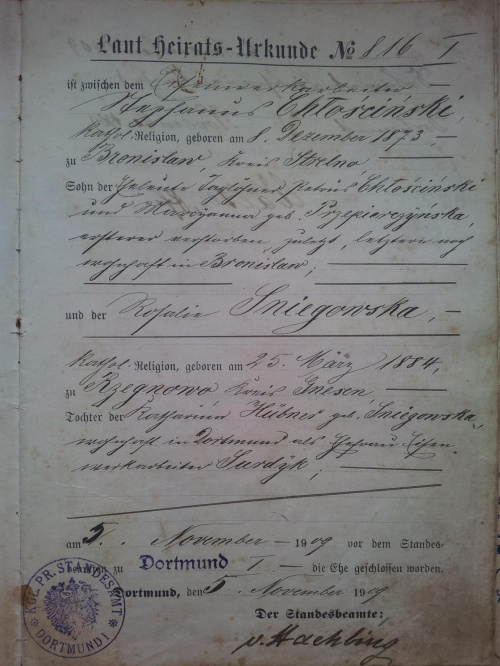 Laut Heirats-Urkunde № 816 I
ist zwischen dem Eisenwerkarbeiter —
Stephanus Chłościński,
kathol.-Religion, geboren am 8. Dezember 1873, —
zu Bronislaw, Kreis Strelno, —
Sohn der Eheleute Taglöhner Petrus Chłościński
und Maryanna geb. Przepiarczyńska,
ersterer verstorben, zuletzt, letztere noch
wohnhaft in Bronislaw; —
und der Rosalie Sniegowska, —
kathol.-Religion, geboren am 25. März 1884,
zu Rzegnowo Kreis Gnesen, —
Tochter der Katharina Hübner geb. Sniegowska,
wohnhaft in Dortmund als Ehefrau Eisen-
werkarbeiter Surdyk; —
am 5. November — 1909 vor dem Standes-
beamten zu Dortmund I — die Ehe geschlossen worden.
Dortmund, den 5. November 1909
Der Standesbeamte:
KGL. PR. STANDESAMT
DORTMUND I